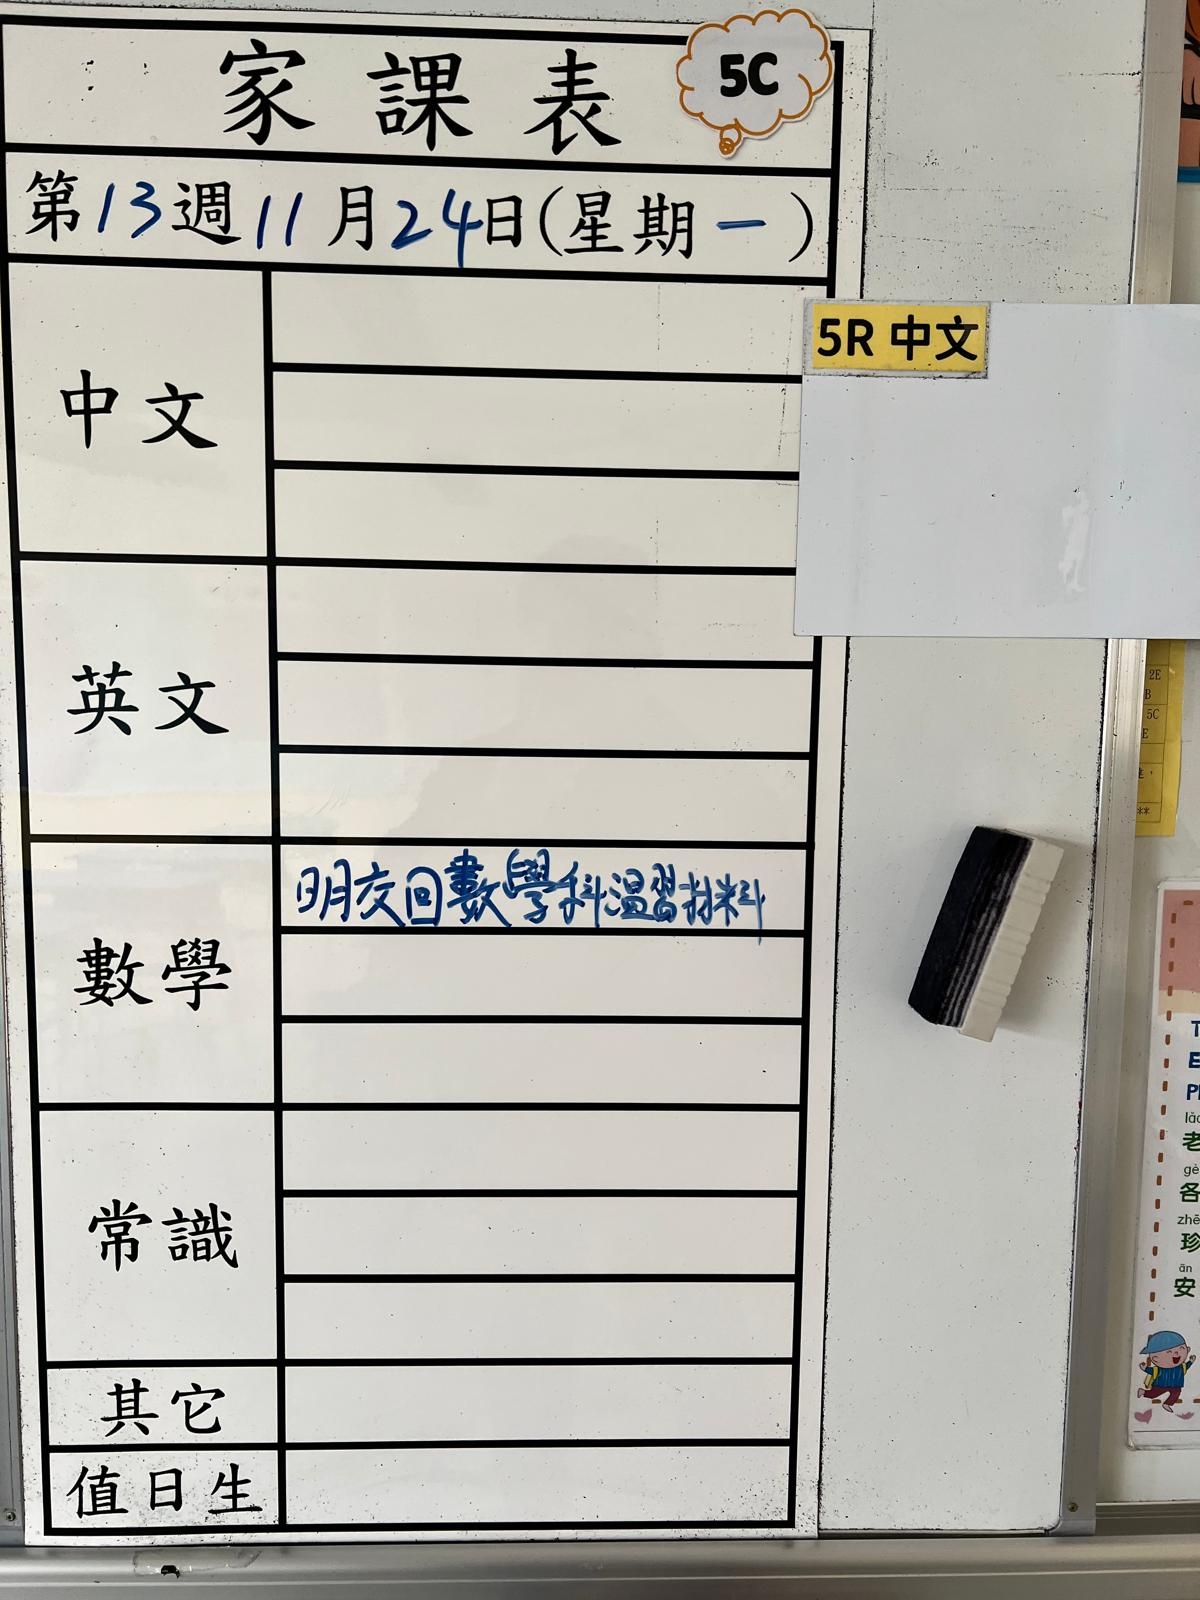 家課表
5C
第13週11月24日(星期一)
5R 中文
中文
英文
數學
明交回數學科溫習材料
常識
其它
值日生
2E
B
5C
E
**
老
各
珍
ān
安